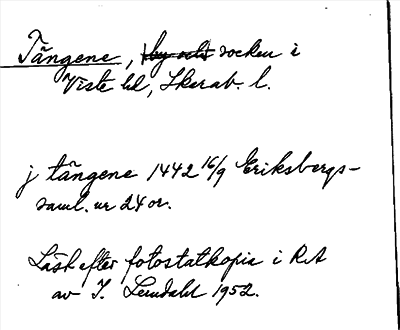 Tängene, by och socken i
Viste hd, Skarab. l.
j tängene 1442 16/9 Eriksbergs-
saml. nr 24 or.
Läst efter fotostatkopia i RA
av I. Lundahl 1952.